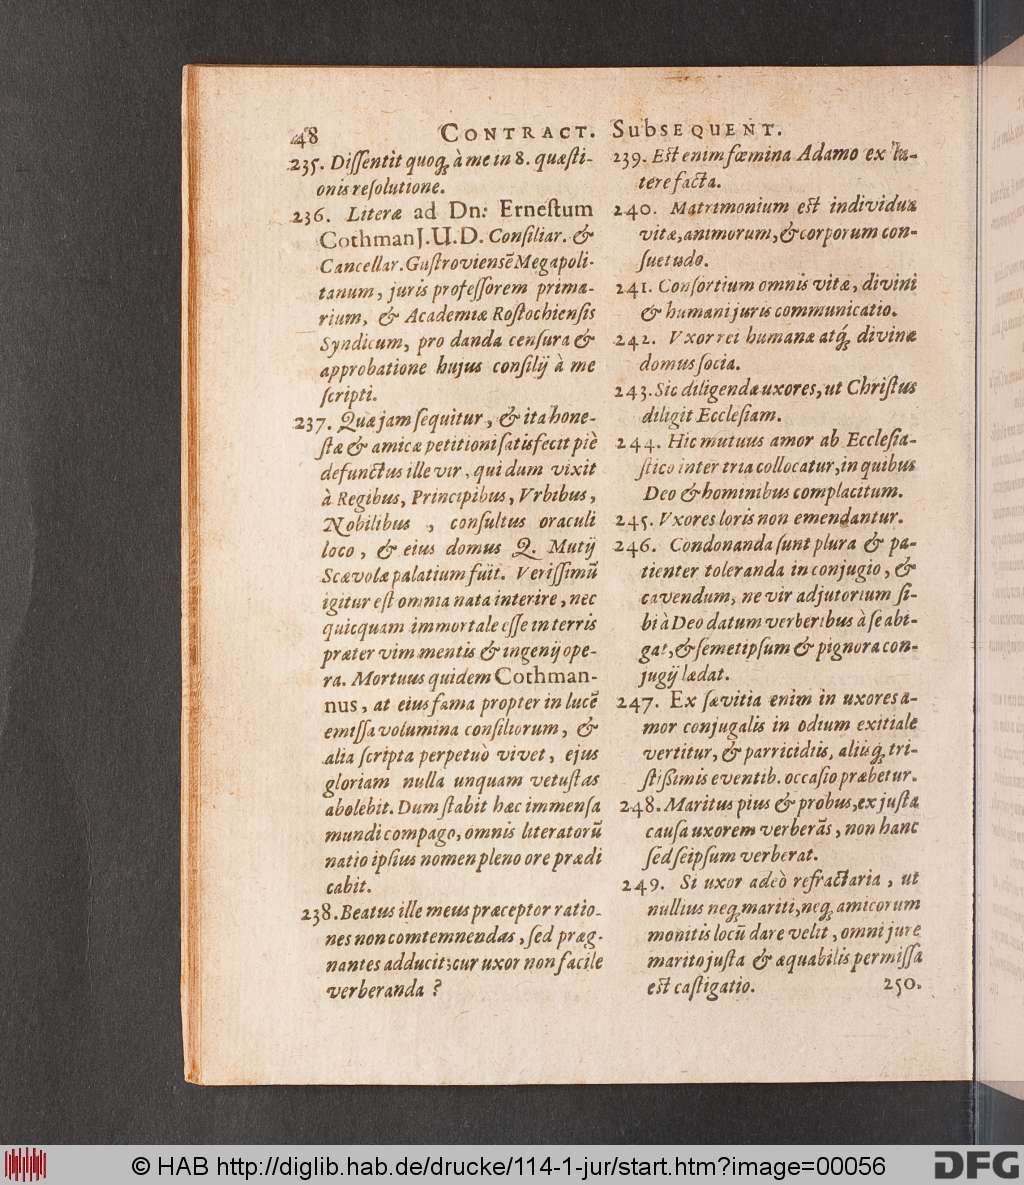 48 CONTRACT. SUBSEQUENT.
235. Dissentit quoq; à me in 8. quæsti-
onis resolutione.
236. Literæ ad Dn: Ernestum
Cothman J.U.D. Consiliar. &
Cancellar. Gustroviensē Megapoli-
tanum, juris professorem prima-
rium, & Academiæ Rostochiensis
Syndicum, pro danda censura &
approbatione hujus consilij à me
scripti.
237. Quæ jam sequitur, & ita hone-
stæ & amicæ petitioni satisfecit piè
defunctus ille vir, qui dum vixit
à Regibus, Principibus, Vrbibus,
Nobilibus, consultus oraculi
loco, & eius domus Q. Mutij
Scævolæ palatium fuit. Verissimū
igitur est omnia nata interire, nec
quicquam immortale esse in terris
præter vim mentis & ingenij ope-
ra. Mortuus quidem Cothman-
nus, at eius fama propter in lucē
emissa volumina consiliorum, &
alia scripta perpetuò vivet, ejus
gloriam nulla unquam vetustas
abolebit. Dum stabit hæc immensa
mundi compago, omnis literatorū
natio ipsius nomen pleno ore prædi
cabit.
238. Beatus ille meus præceptor ratio-
nes non comtemnendas, sed præg-
nantes adducit; cur uxor non facile
verberanda?
239. Est enim fœmina Adamo ex la-
tere facta.
240. Matrimonium est individuæ
vitæ, animorum, & corporum con-
suetudo.
241. Consortium omnis vitæ, divini
& humani juris communicatio.
242. Vxor rei humanæ atq́; divinæ
domus socia.
243. Sic diligendæ uxores, ut Christus
diligit Ecclesiam.
244. Hic mutuus amor ab Ecclesia-
stico inter tria collocatur, in quibus
Deo & hominibus complacitum.
245. Vxores loris non emendantur.
246. Condonanda sunt plura & pa-
tienter toleranda in conjugio, &
cavendum, ne vir adjutorium si-
bi à Deo datum verberibus à se abi-
gat, & semetipsum & pignora con-
jugij lædat.
247. Ex sævitia enim in uxores a-
mor conjugalis in odium exitiale
vertitur, & parricidiis, aliisq́; tri-
stißimis eventib. occasio præbetur.
248. Maritus pius & probus, ex justa
causa uxorem verberās, non hanc
sed seipsum verberat.
249. Si uxor adeò refractaria, ut
nullius neq; mariti, neq; amicorum
monitis locū dare velit, omni jure
marito justa & æquabilis permissa
est castigatio. 250.
© HAB http://diglib.hab.de/drucke/114-1-jur/start.htm?image=00056
DFG